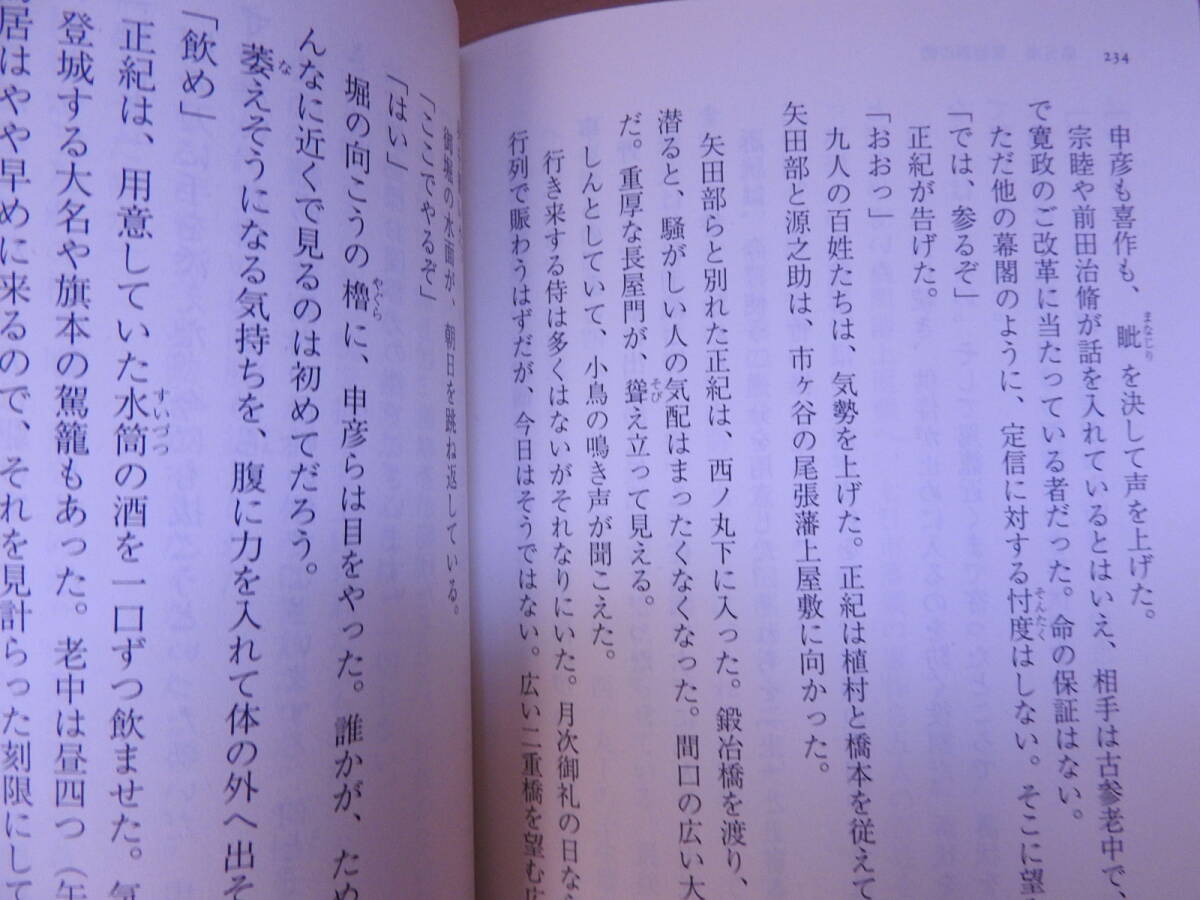 234
申彦も喜作も、眦を決して声を上げた。
まなじり
宗睦や前田治脩が話を入れているとはいえ、相手は古参老中で、
で寛政のご改革に当たっている者だった。命の保証はない。
ただ他の幕閣のように、定信に対する忖度はしない。そこに望
そんたく
「では、参るぞ」
正紀が告げた。
「おおっ」
九人の百姓たちは、気勢を上げた。正紀は植村と橋本を従えて
矢田部と源之助は、市ヶ谷の尾張藩上屋敷に向かった。
矢田部らと別れた正紀は、西ノ丸下に入った。鍛冶橋を渡り、
潜ると、騒がしい人の気配はまったくなくなった。間口の広い大
だ。重厚な長屋門が、聳え立って見える。
そび
しんとしていて、小鳥の鳴き声が聞こえた。
行き来する侍は多くはないがそれなりにいた。月次御礼の日なら
行列で賑わうはずだが、今日はそうではない。広い二重橋を望む広
御堀の水面が、朝日を跳ね返している。
「ここでやるぞ」
「はい」
堀の向こうの櫓に、申彦らは目をやった。誰かが、ため
やぐら
んなに近くで見るのは初めてだろう。
萎えそうになる気持ちを、腹に力を入れて体の外へ出そ
な
「飲め」
正紀は、用意していた水筒の酒を一口ずつ飲ませた。気
すいづつ
登城する大名や旗本の駕籠もあった。老中は昼四つ（午
居はやや早めに来るので、それを見計らった刻限にして